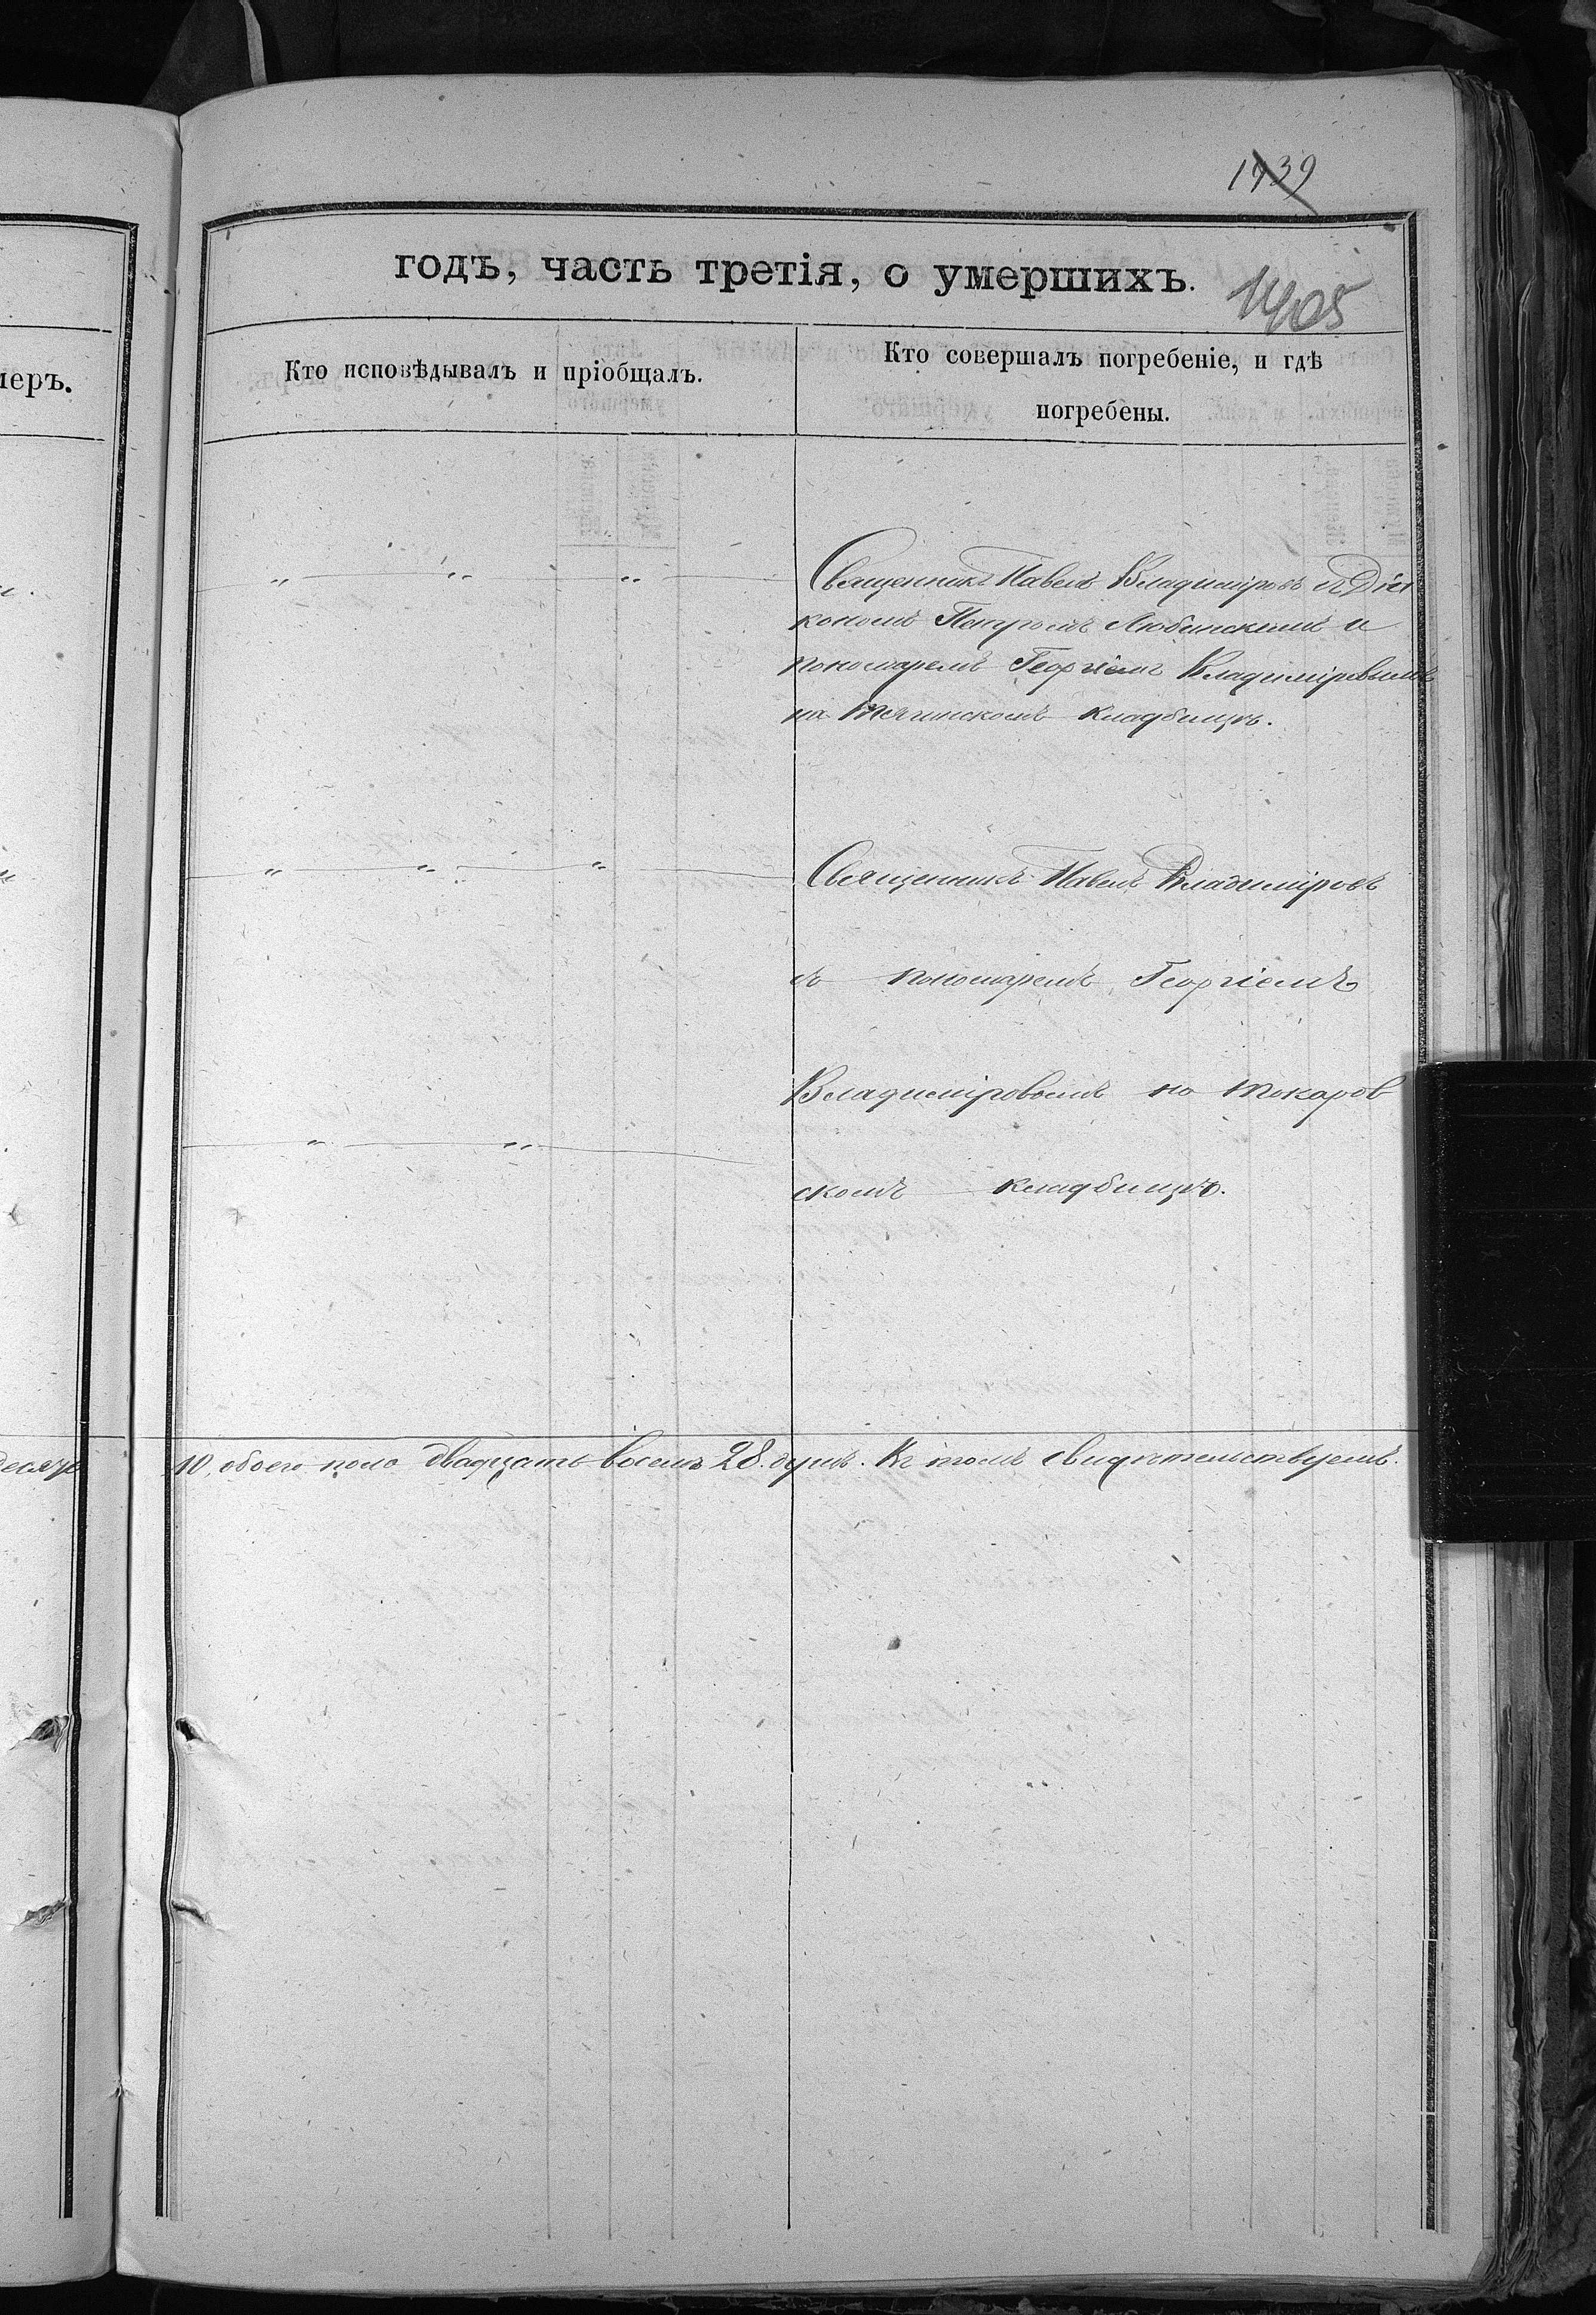 1939
годъ, часть третія, о умершихъ.
1405
меръ.
Кто исповѣдывалъ и пріобщалъ.
Кто совершалъ погребеніе, и гдѣ
погребены.
Священникъ Павелъ Владиміровъ съ Дiа
кономъ Петромъ Любинскимъ и
пономаремъ Георгіемъ Владиміровымъ
на кладбищѣ.
Священникъ Павелъ Владиміровъ
съ пономаремъ Георгіемъ
Владиміровомъ на Токаров
скомъ кладбищѣ.
10, обоего пола двадцать восемь 28. душъ. Къ томъ свидѣтельствуемъ.